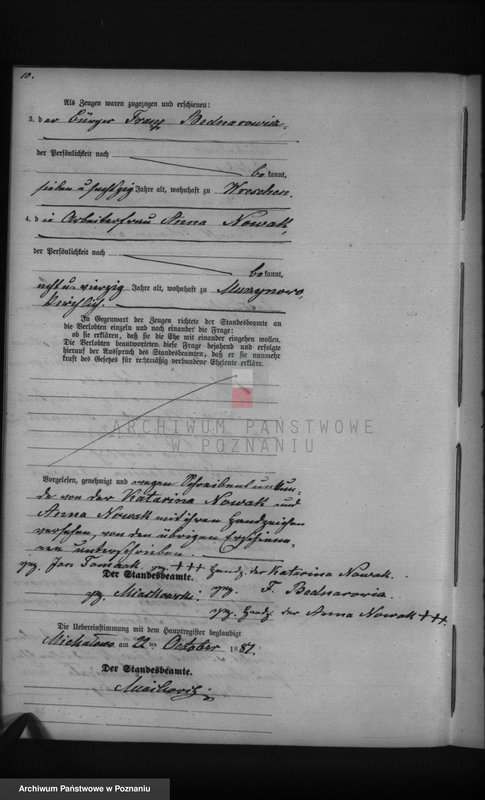 10.
Als Zeugen waren zugezogen und erschienen:
3. der Bürger Franz Bednarowicz,
der Persönlichkeit nach
bekannt,
sieben u sechszig Jahre alt, wohnhaft zu Wreschen.
4. die Arbeiterfrau Anna Nowak,
der Persönlichkeit nach
bekannt,
acht u. vierzig Jahre alt, wohnhaft zu Murzynowo
kirchlich.
In Gegenwart der Zeugen richtete der Standesbeamte an
die Verlobten einzeln und nach einander die Frage:
ob sie erklären, daß sie die Ehe mit einander eingehen wollen.
Die Verlobten beantworteten diese Frage bejahend und erfolgte
hierauf der Ausspruch des Standesbeamten, daß er sie nunmehr
kraft des Gesetzes für rechtmäßig verbundene Eheleute erkläre.
ARCHIWUM PAŃSTWOWE
W POZNANIU
Vorgelesen, genehmigt und wegen Schreibensunkun-
de von der Katarina Nowak und
Anna Nowak mit ihren Handzeichen
versehen, von den übrigen Erschiene-
nen unterschrieben.
gez. Jan Tomczak gez. +++ Handz. der Katarina Nowak.
Der Standesbeamte. gez. F. Bednarovia
gez. gez. Handz. der Anna Nowak +++.
Die Uebereinstimmung mit dem Hauptregister beglaubigt
am 22 ten October 1882.
Der Standesbeamte.
Archiwum Państwowe w Poznaniu